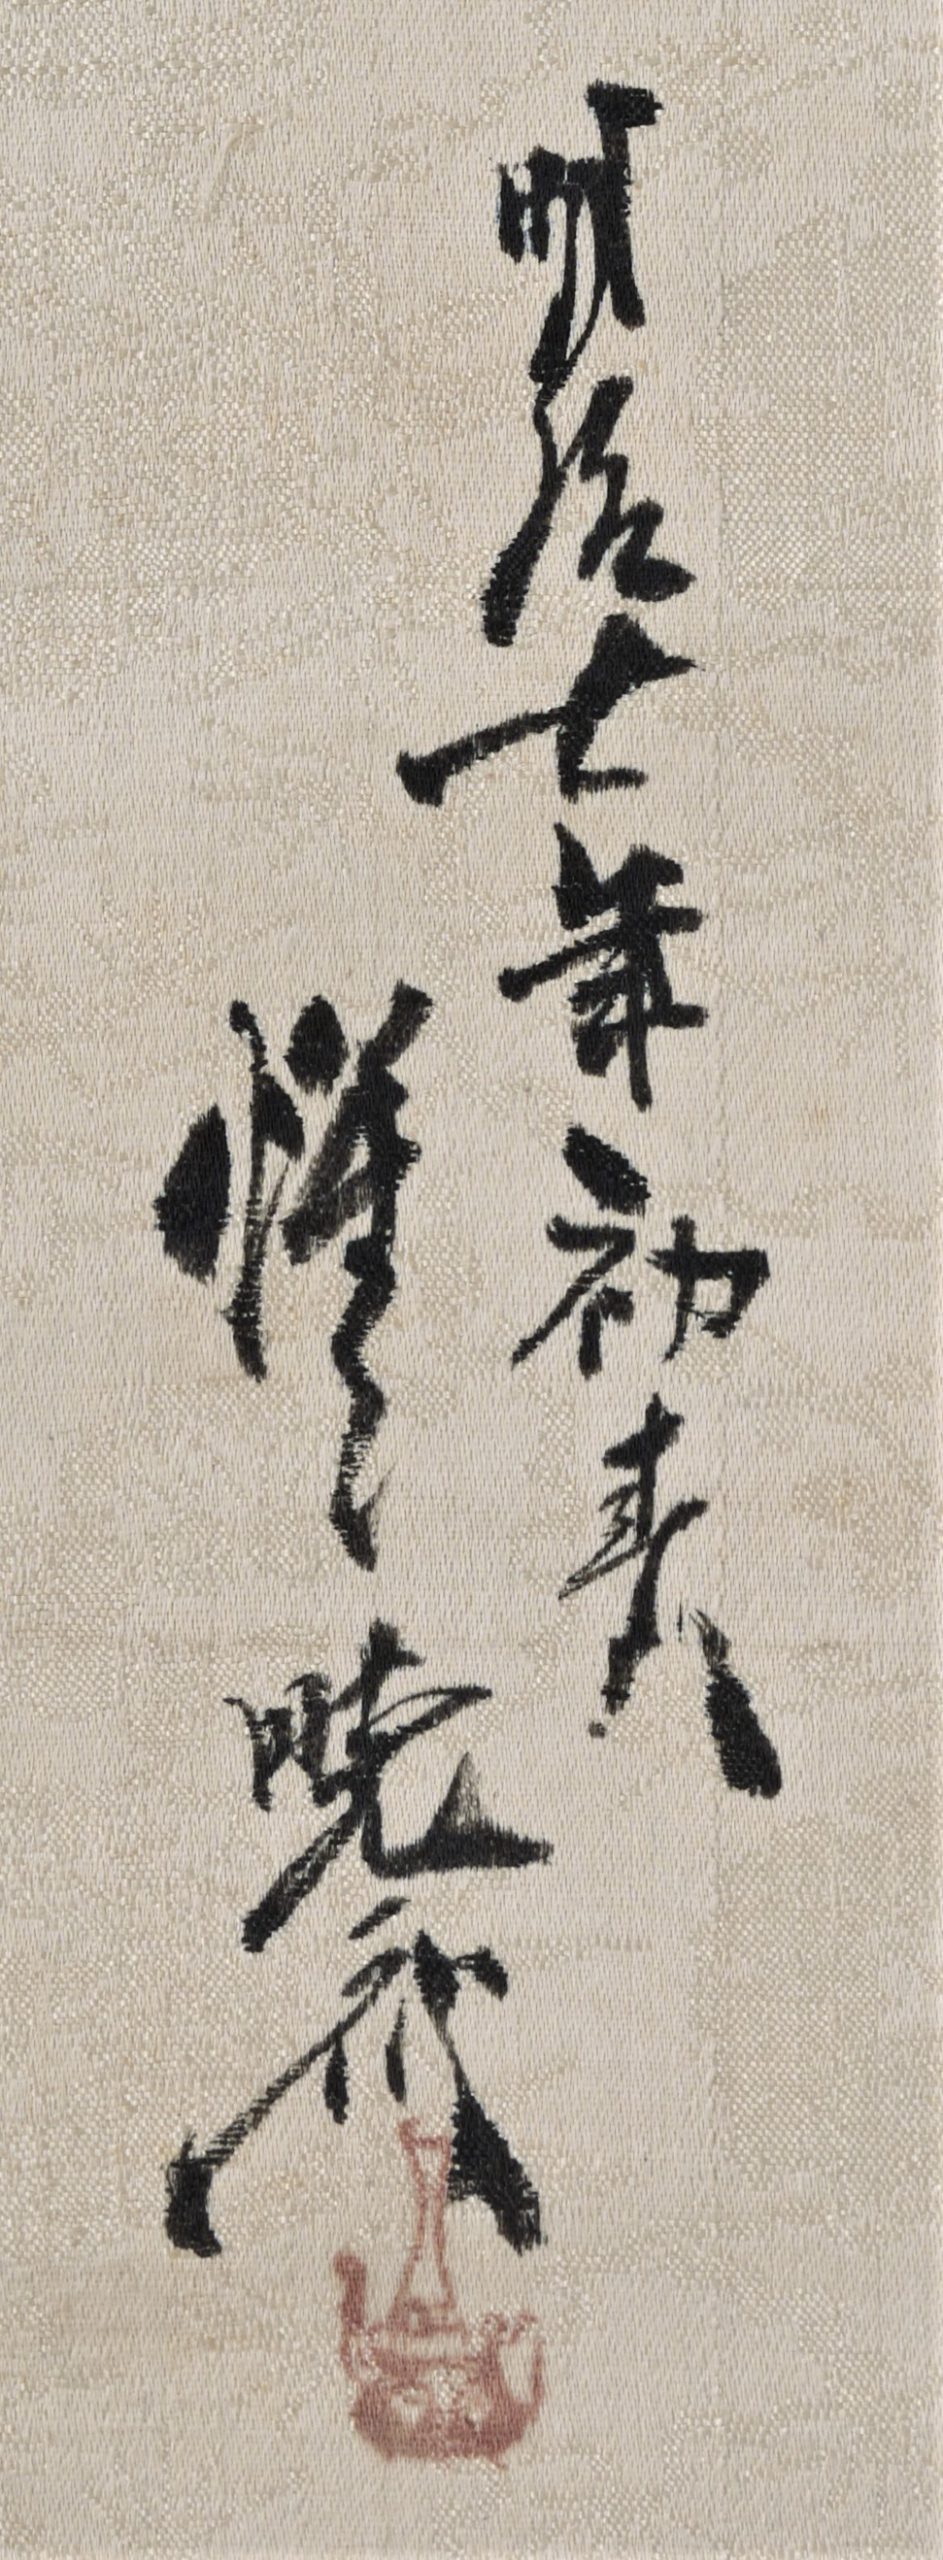 明治七年初春
惺々暁斎